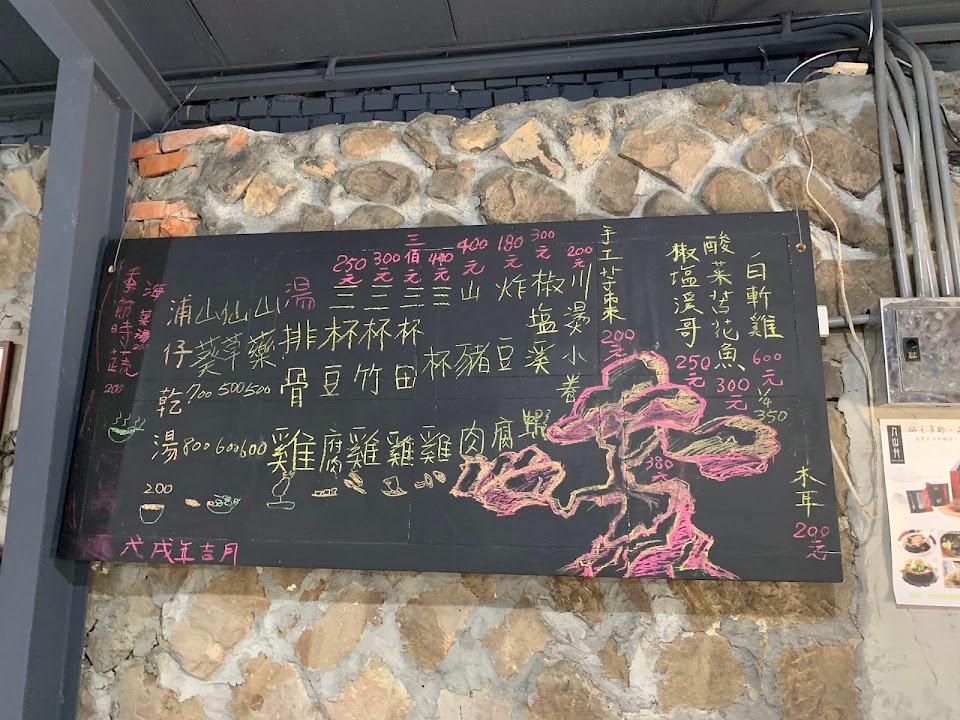 白斬雞 600元 ¼350
木耳 200元
酸菜苦花魚 300元
椒塩溪哥 250元
手工芋棗 200元
380
200元 川燙小卷
300元 椒塩溪蝦
180元 炸豆腐
400元 山豬肉
440元 三杯雞
三佰元 三杯田雞
300元 三杯竹雞
250元 三杯豆腐
湯 排骨 雞
山藥 500 600
仙草 500 600
山葵 700 800
浦仔乾湯 200
海菜湯
季節時蔬 200
犬戌年吉月